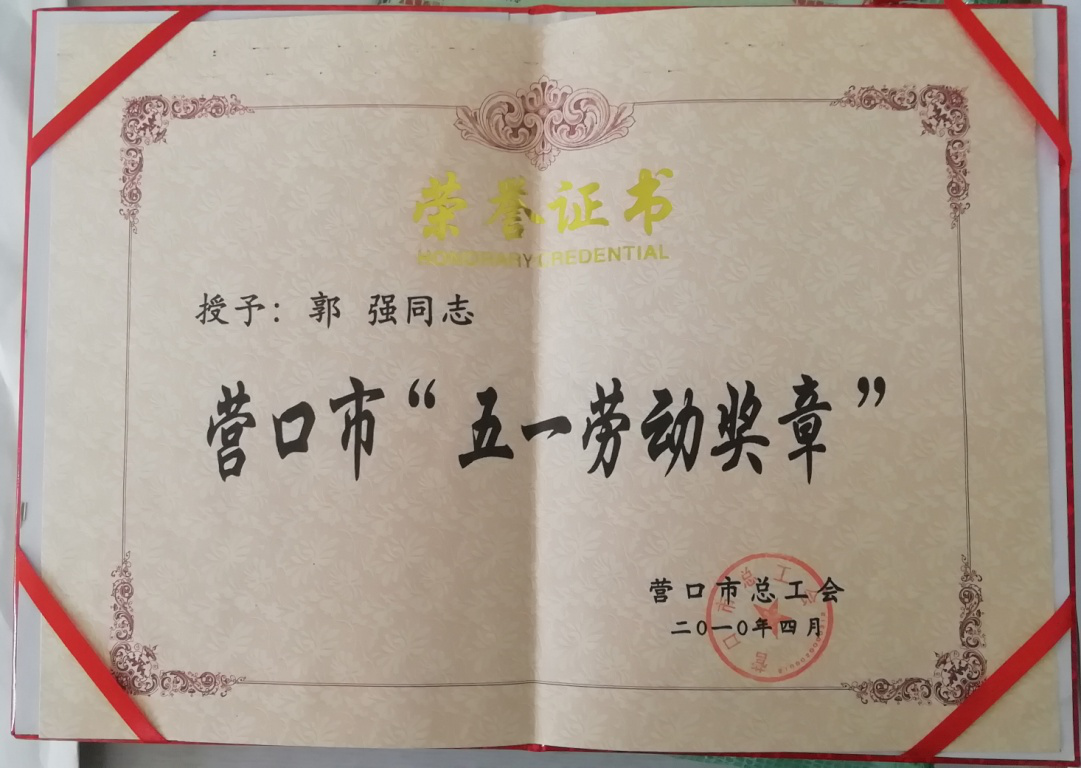 荣誉证书
HONORARY CREDENTIAL
授予：郭 强同志
营口市“五一劳动奖章”
营口市总工会
二0一0年四月
营口市总工会